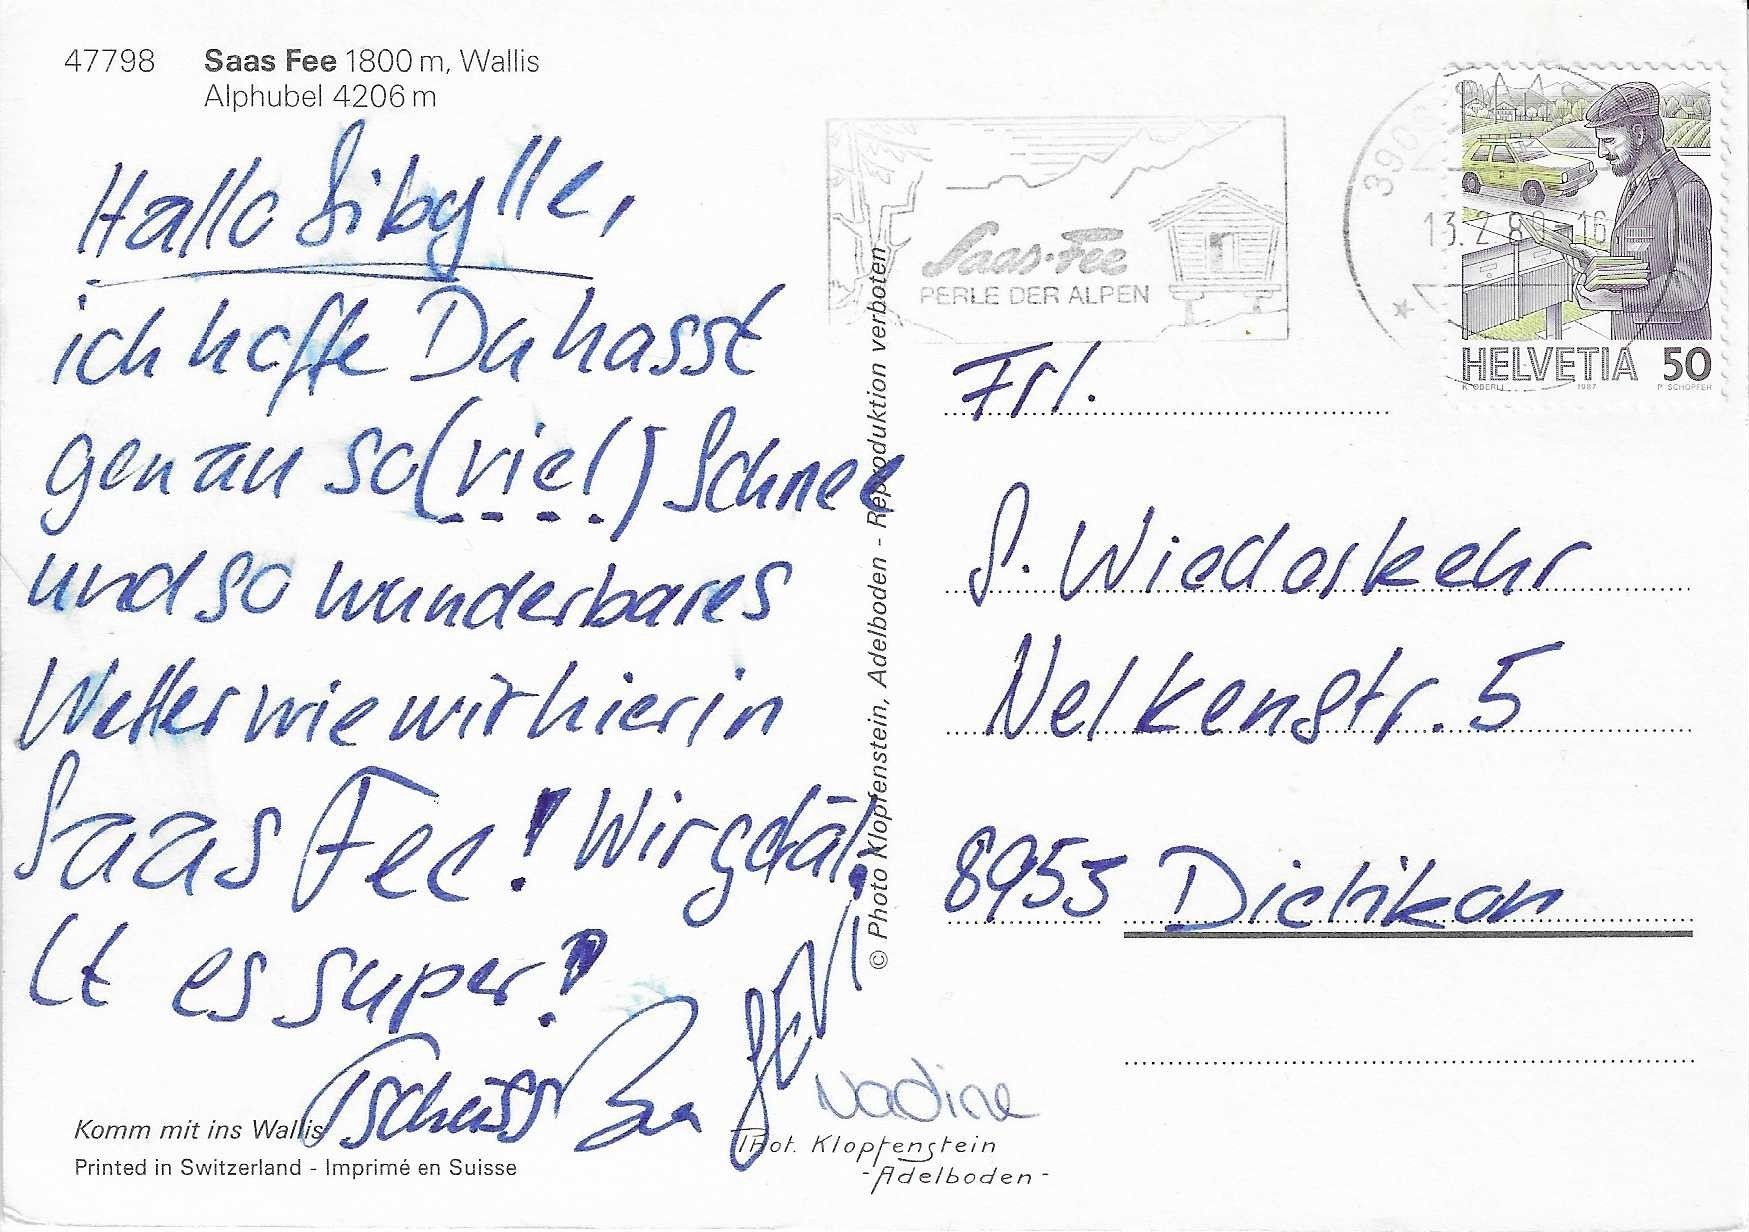 47798 Saas Fee 1800 m, Wallis
Alphubel 4206 m
Hallo Sibylle,
ich hoffe Du hasst
genau so (viel) Schnee
und so wunderbares
Wetter wie wir hier in
Saas Fee! Wir gfäl.
lt es super!
Tschüss
Nadine
Komm mit ins Wallis
Printed in Switzerland - Imprimé en Suisse
Phot. Klopfenstein
- Adelboden -
© Photo Klopfenstein, Adelboden - Reproduktion verboten
Saas-Fee
PERLE DER ALPEN
13.2.8 -16
HELVETIA 50
K. OBERLI 1987 P. SCHOPFER
Frl.
S. Wiederkehr
Nelkenstr. 5
8953 Dietikon